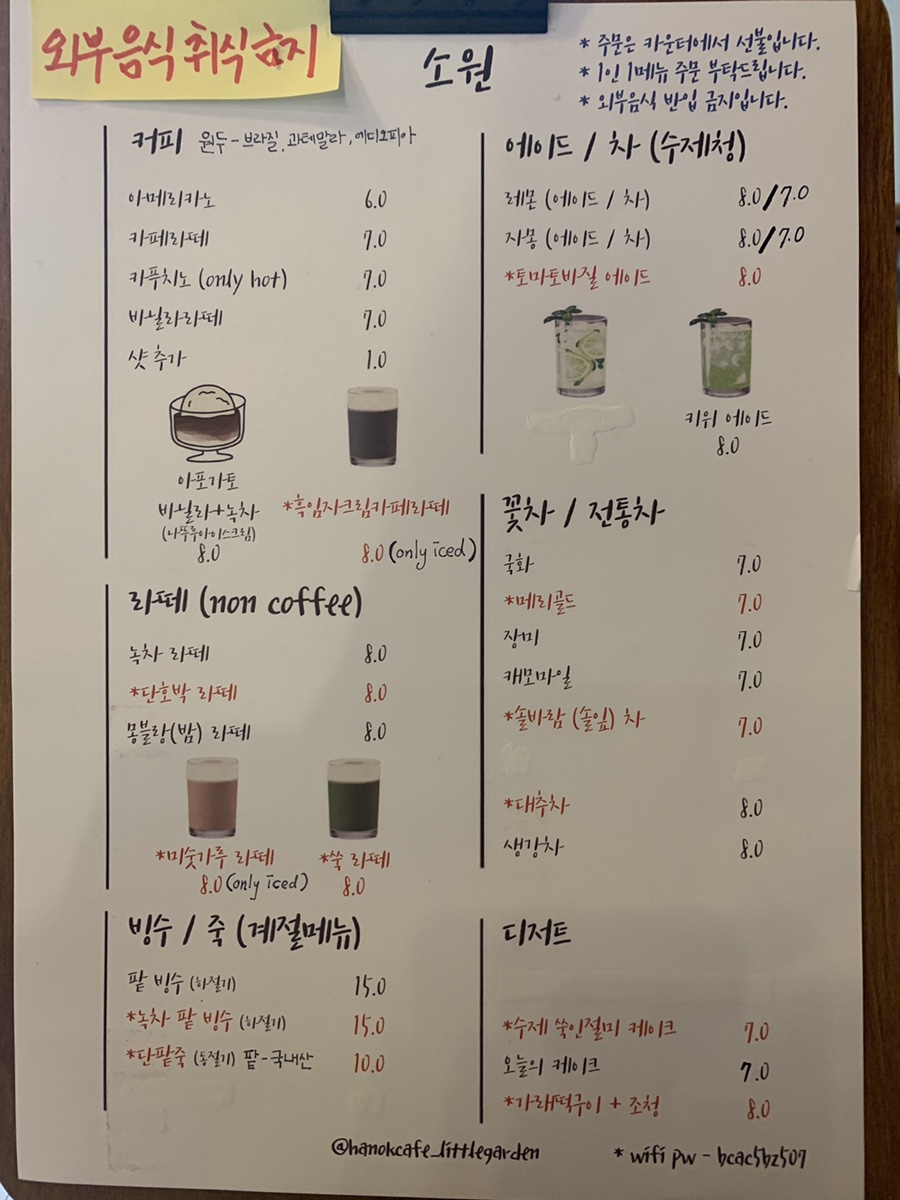 외부음식 취식 금지
소원
* 주문은 카운터에서 선불입니다.
* 1인 1메뉴 주문 부탁드립니다.
* 외부음식 반입 금지입니다.
커피 원두 - 브라질, 과테말라, 에디오피아
아메리카노 6.0
카페라떼 7.0
카푸치노 (only hot) 7.0
바닐라라떼 7.0
샷 추가 1.0
아포가토
바닐라+녹차
(나뚜루아이스크림)
8.0
*흑임자크림카페라떼
8.0 (only iced)
라떼 (non coffee)
녹차 라떼 8.0
*단호박 라떼 8.0
몽블랑(밤) 라떼 8.0
*미숫가루 라떼
8.0 (only iced)
*쑥 라떼
8.0
빙수 / 죽 (계절메뉴)
팥 빙수 (하절기) 15.0
*녹차 팥 빙수 (하절기) 15.0
*단팥죽 (동절기) 팥-국내산 10.0
에이드 / 차 (수제청)
레몬 (에이드 / 차) 8.0/7.0
자몽 (에이드 / 차) 8.0/7.0
*토마토바질 에이드 8.0
키위 에이드
8.0
꽃차 / 전통차
국화 7.0
*메리골드 7.0
장미 7.0
캐모마일 7.0
*솔바람 (솔잎) 차 7.0
*대추차 8.0
생강차 8.0
디저트
*수제 쑥인절미 케이크 7.0
오늘의 케이크 7.0
*가래떡구이 + 조청 8.0
@hanokcafe_littlegarden
* wifi pw - bcac5bz507